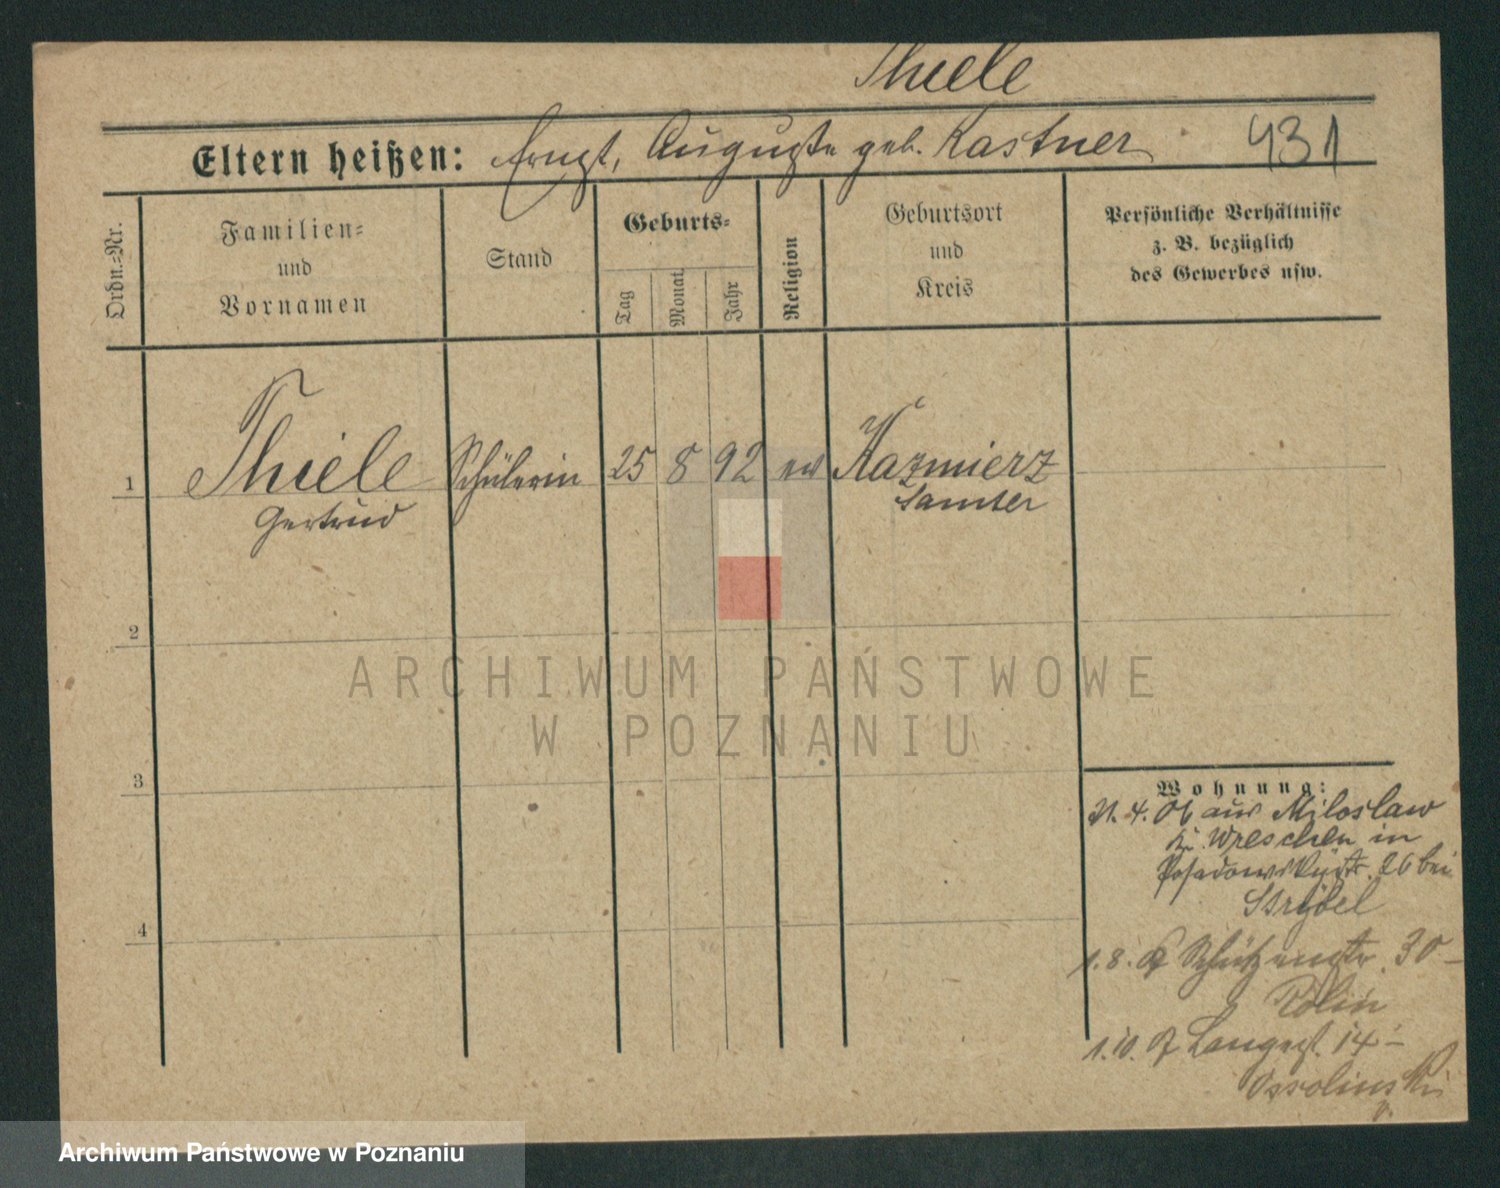 Thiele
Eltern heißen: Ernst, Auguste geb. Kastner 431
Ordn.-Nr.
Familien-
und
Vornamen
Stand
Geburts-
Tag
Monat
Jahr
Religion
Geburtsort
und
Kreis
Persönliche Verhältnisse
z. B. bezüglich
des Gewerbes usw.
1 Thiele Schülerin 25 8 92 ev Kazmierz
Gertrud Samter
2
3
4
Wohnung:
21. 4. 06 aus Miloslaw
Kr. Wreschen in
Posadowskystr. 26 bei
Strybel
1. 8. Schützenstr. 30 –
1. 10. Langest. 14 –
Ossolinski
ARCHIWUM PAŃSTWOWE
W POZNANIU
Archiwum Państwowe w Poznaniu